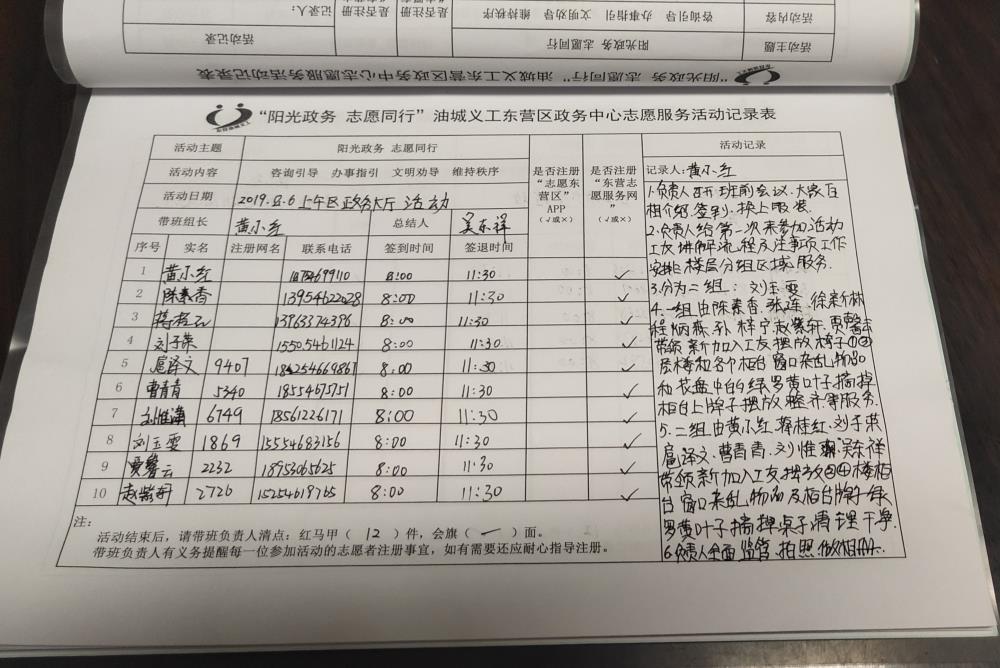 活动主题 阳光政务 志愿同行 活动记录
活动内容 咨询引导 办事指引 文明劝导 维持秩序 是否注册 是否注册 记录人：
“阳光政务 志愿同行”油城义工东营区政务中心志愿服务活动记录表
“阳光政务 志愿同行”油城义工东营区政务中心志愿服务活动记录表
活动主题 阳光政务 志愿同行
活动内容 咨询引导 办事指引 文明劝导 维持秩序
活动日期 2019.11.6上午区政务大厅活动
带班组长 黄小红 总结人 吴东祥
序号 实名 注册网名 联系电话 签到时间 签退时间
是否注册
“志愿东
营区”
APP
（√或×）
是否注册
“东营志
愿服务网
”
（√或×）
1 黄小红 8:00 11:30 ✓
2 陈素香 13954622028 8:00 11:30 ✓
3 蒋桂红 13963374396 8:00 11:30 ✓
4 刘子荣 15505461124 8:00 11:30 ✓
5 扈译文 9407 8:00 11:30 ✓
6 曹青青 5340 8:00 11:30 ✓
7 刘惟满 6749 18561226171 8:00 11:30 ✓
8 刘玉雯 1869 15554683156 8:00 11:30 ✓
9 贾馨云 2232 18953065625 8:00 11:30 ✓
10 赵紫轩 2726 15254619765 8:00 11:30 ✓
注：
活动结束后，请带班负责人清点：红马甲（12）件，会旗（一）面。
带班负责人有义务提醒每一位参加活动的志愿者注册事宜，如有需要还应耐心指导注册。
活动记录
记录人：黄小红
1.负责人召开班前会议.大家互
相介绍.签到.换上服装.
2.负责人给第一次来参加活动
义工讲解流程及注事项工作
安排楼层分组区域服务.
3.分为二组：刘玉雯
4.一组由陈素香.张莲.徐新林
程炳燕.孙梓宁.赵紫轩.贾馨云
带领新加入义工摆放椅子①②
层楼和各个柜台窗口杂乱物品
和花盘中的绿罗黄叶子摘掉
柜台上牌子摆放整齐等服务.
5.二组由黄小红.蒋桂红.刘子荣
扈译文.曹青青.刘惟满.吴东祥
带领新加入义工摆放③④楼柜
台窗口杂乱物品及柜台牌子绿
罗黄叶子摘掉桌子清理干净.
6.负责人全面监管.拍照.做相册.